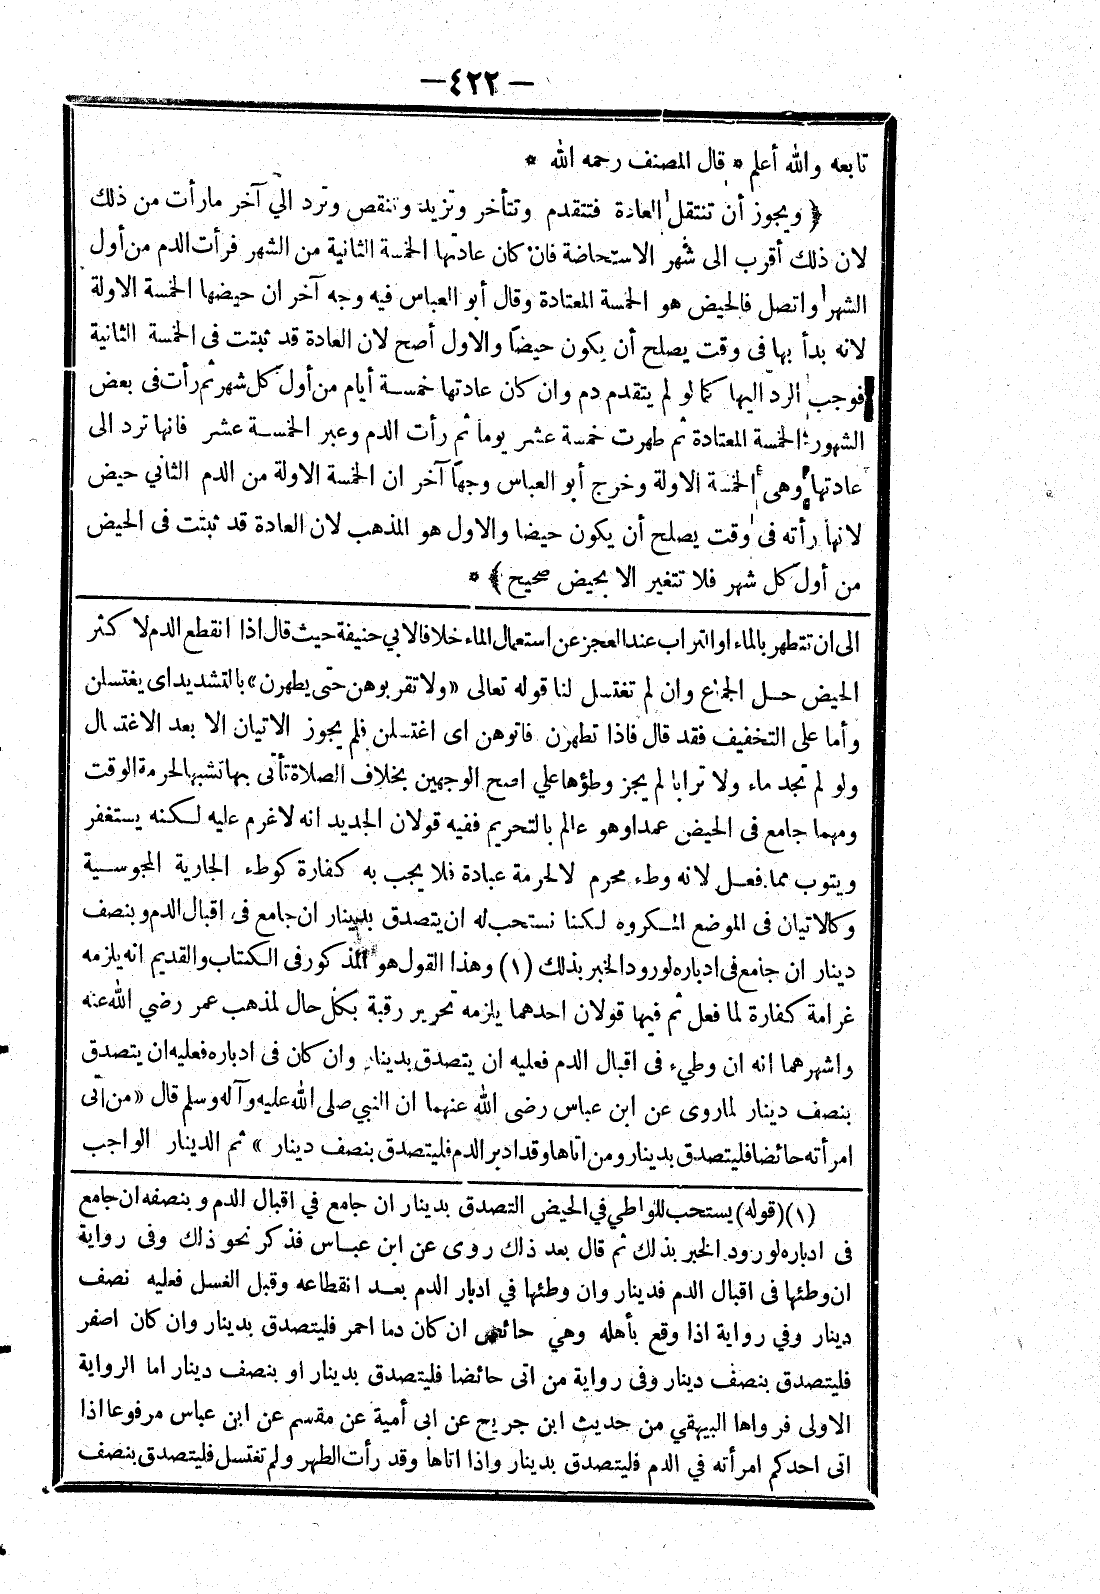 — ٤٢٢ —
تابعه والله أعلم * قال المصنف رحمه الله *
﴿ ويجوز أن تنتقل العادة فتتقدم وتتأخر وتزيد وتنقص وترد الي آخر مارأت من ذلك
لان ذلك أقرب الى شهر الاستحاضة فان كان عادتها الخمسة الثانية من الشهر فرأت الدم من أول
الشهر واتصل فالحيض هو الخمسة المعتادة وقال أبو العباس فيه وجه آخر ان حيضها الخمسة الاولة
لانه بدأ بها فى وقت يصلح أن يكون حيضاً والاول أصح لان العادة قد ثبتت فى الخمسة الثانية
فوجب الرد اليها كما لو لم يتقدم دم وان كان عادتها خمسة أيام من أول كل شهر ثم رأت فى بعض
الشهور الخمسة المعتادة ثم طهرت خمسة عشر يوما ثم رأت الدم وعبر الخمسة عشر فانها ترد الى
عادتها وهى الخمسة الاولة وخرج أبو العباس وجهاً آخر ان الخمسة الاولة من الدم الثاني حيض
لانها رأته فى وقت يصلح أن يكون حيضا والاول هو المذهب لان العادة قد ثبتت فى الحيض
من أول كل شهر فلا تتغير الا بحيض صحيح ﴾ *
الى ان تتطهر بالماء او التراب عند العجز عن استعمال الماء خلافا لابي حنيفة حيث قال اذا انقطع الدم لا كثر
الحيض حل الجماع وان لم تغتسل لنا قوله تعالى «ولا تقربوهن حتى يطهرن» بالتشديد اى يغتسلن
وأما على التخفيف فقد قال فاذا تطهرن فاتوهن اى اغتسلن فلم يجوز الاتيان الا بعد الاغتسال
ولو لم تجد ماء ولا ترابا لم يجز وطؤها علي اصح الوجهين بخلاف الصلاة تأتى بها تشبها لحرمة الوقت
ومهما جامع فى الحيض عمدا وهو عالم بالتحريم ففيه قولان الجديد انه لا غرم عليه لكنه يستغفر
ويتوب مما فعل لانه وطء محرم لا لحرمة عبادة فلا يجب به كفارة كوطء الجارية المجوسية
وكالاتيان فى الموضع المكروه لكنا نستحب له ان يتصدق بدينار ان جامع فى اقبال الدم وبنصف
دينار ان جامع فى ادباره لورود الخبر بذلك (١) وهذا القول هو المذكور فى الكتاب والقديم انه يلزمه
غرامة كفارة لما فعل ثم فيها قولان احدهما يلزمه تحرير رقبة بكل حال لمذهب عمر رضي الله عنه
واشهرهما انه ان وطيء فى اقبال الدم فعليه ان يتصدق بدينار وان كان فى ادباره فعليه ان يتصدق
بنصف دينار لما روى عن ابن عباس رضى الله عنهما ان النبي صلى الله عليه وآله وسلم قال «من اتى
امرأته حائضا فليتصدق بدينار ومن اتاها وقد ادبر الدم فليتصدق بنصف دينار » ثم الدينار الواجب
(١) (قوله) يستحب للواطي في الحيض التصدق بدينار ان جامع في اقبال الدم وبنصفه ان جامع
فى ادباره لورود الخبر بذلك ثم قال بعد ذلك روى عن ابن عباس فذكر نحو ذلك وفى رواية
ان وطئها فى اقبال الدم فدينار وان وطئها في ادبار الدم بعد انقطاعه وقبل الغسل فعليه نصف
دينار وفي رواية اذا وقع بأهله وهي حائض ان كان دما احمر فليتصدق بدينار وان كان اصفر
فليتصدق بنصف دينار وفى رواية من اتى حائضا فليتصدق بدينار او بنصف دينار اما الرواية
الاولى فرواها البيهقي من حديث ابن جريج عن ابى أمية عن مقسم عن ابن عباس مرفوعا اذا
اتى احدكم امرأته في الدم فليتصدق بدينار واذا اتاها وقد رأت الطهر ولم تغتسل فليتصدق بنصف